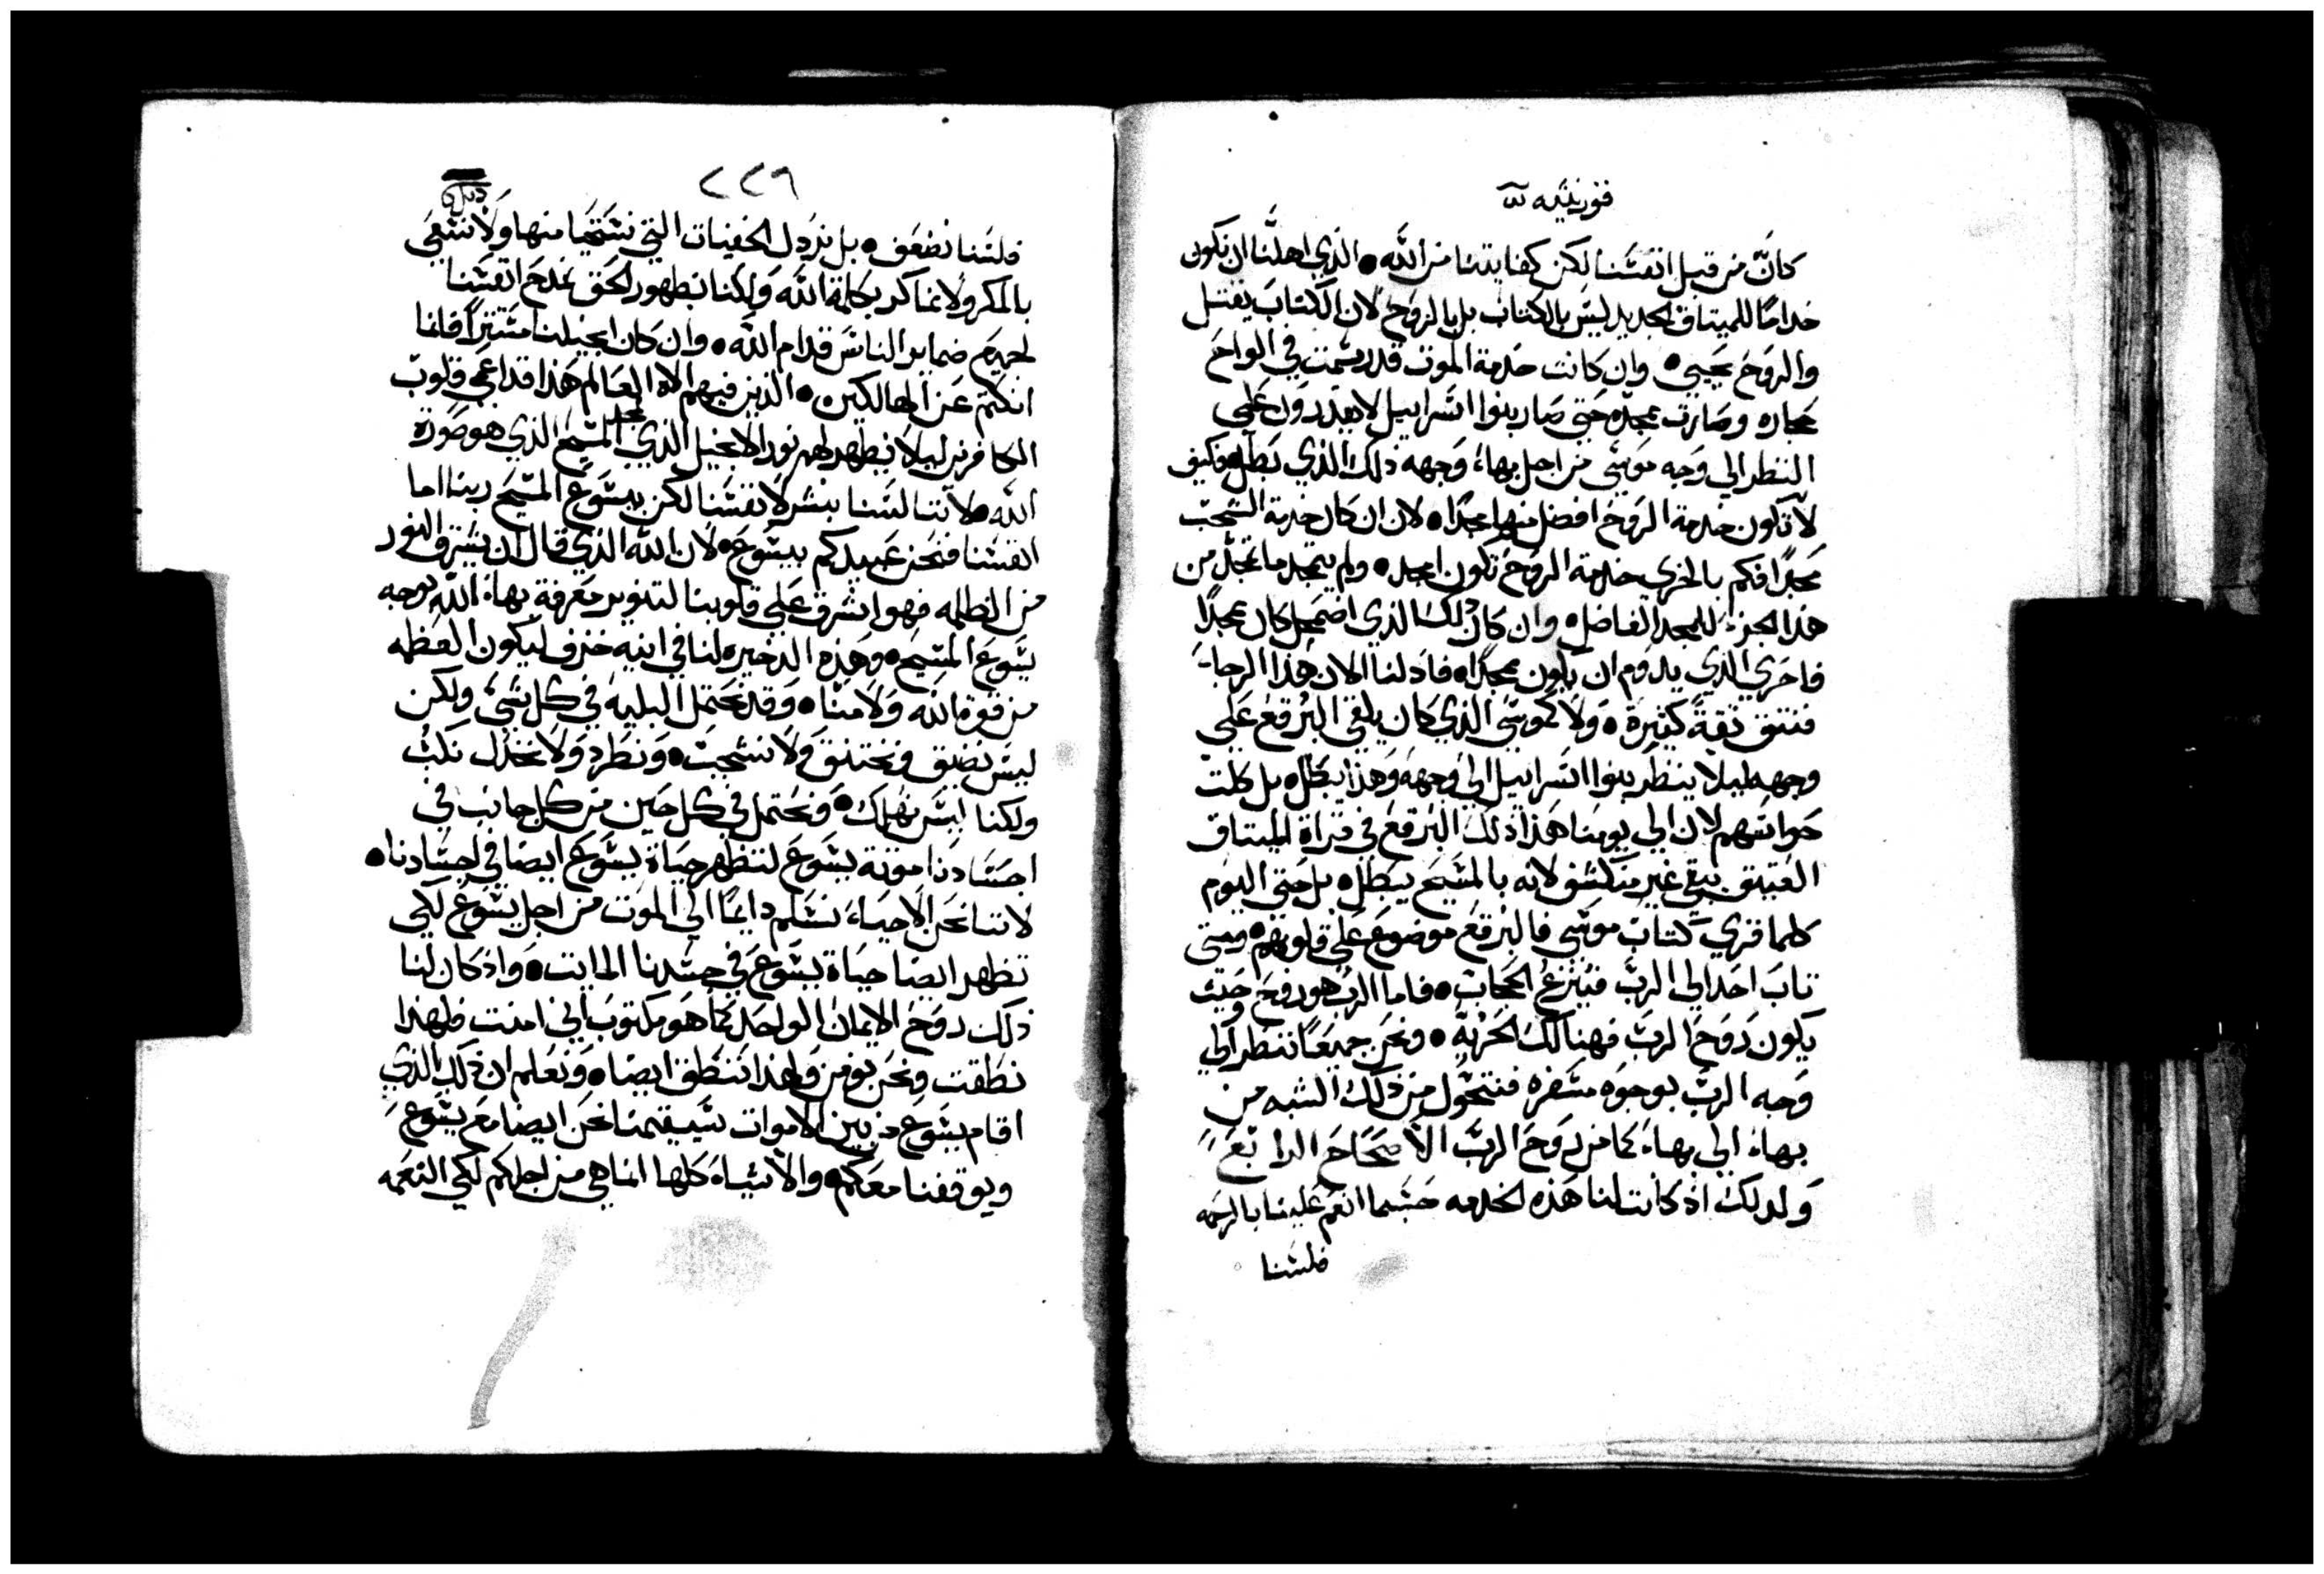 قورنثيه
كان من قبل انفسنا لكن كفايتنا من الله • الذي اهلنا ان نكون
خدامًا للميتاق الجديد ليس بالكتاب بل بالروح لان الكتاب يقتل
والروح يحيي • وان كانت خدمة الموت قد رسمت في الواح
حجاره وصارت بمجد حتى صار بنوا اسراييل لا يقدرون على
النظر الى وجه موسى من اجل بهاء وجهه ذلك الذي بطل • فكيف
لا تكون خدمة الروح افضل منها مجدًا • لان ان كان خدمة الشجب
مجدًا فكم بالحري خدمة الروح تكون امجد • ولم يتمجد ما تمجد من
هذا الجزء للمجد الفاضل • وان كان ذلك الذي اضمحل كان مجدًا
فاحري الذي يدوم ان يكون مجدًا • فاد لنا الان هذا الرجاء
فنثق ثقة كثيرة • ولا كموسى الذي كان يلقي البرقع على
وجهه ليلا ينظر بنوا اسراييل الى وجهه وهذا يبطل • بل كلت
حواسهم لان الى يومنا هذا ذلك البرقع في قراة الميتاق
العتيق يبقى غير منكشف لانه بالمسيح يبطل • بل حتى اليوم
كلما قري كتاب موسى فالبرقع موضوع على قلوبهم • ومتى
تاب احد الى الرب فينزع الحجاب • فاما الرب هو روح وحيث
يكون روح الرب فهنالك الحرية • ونحن جميعًا ننظر الى
وجه الرب بوجوه مسفره فنتحول من ذلك الشبه من
بهاء الى بهاء كما من روح الرب الاصحاح الرابع
ولدلك اذ كانت لنا هذه الخدمه حسبما انعم علينا بالرحمه
فلسنا
٢٢٦
فلسنا نضعف • بل نردل الخفيات التي نستحيا منها ولا نسعى
بالمكر ولا نماكر بكلمة الله ولكنا بظهور الحق نمدح انفسنا
لجميع ضماير الناس قدام الله • وان كان انجيلنا مستترًا فانما
انكتم عن الهالكين • الذين فيهم الاه العالم هذا قد اعمى قلوب
الكافرين ليلا يظهر لهم نور الانجيل الذي لمجد المسيح الذي هو صورة
الله • لاننا لسنا نبشر لانفسنا لكن بيسوع المسيح ربنا اما
انفسنا فنحن عبيدكم بيسوع • لان الله الذي قال ان يشرق النور
من الظلمه فهو اشرق على قلوبنا لتنوير معرفة بهاء الله بوجه
يسوع المسيح • وهذه الدخيره لنا في انيه خزف ليكون العظمه
من قوة الله ولا منا • وقد نحتمل البليه في كل شيء ولكن
ليس نضيق ونختنق ولا نشجب • ونطرد ولا نخدل نكب
ولكنا ليس نهلك • ونحتمل في كل حين من كل جانب في
اجسادنا موتة يسوع لتظهر حياة يسوع ايضا في اجسادنا •
لاننا نحن الاحياء نسلم دايمًا الى الموت من اجل يسوع لكي
تظهر ايضا حياة يسوع في جسدنا المايت • واد كان لنا
ذلك روح الايمان الواحد كما هو مكتوب اني امنت فلهدا
نطقت ونحن نومن ولهدا ننطق ايضا • ونعلم ان ذلك الذي
اقام يسوع من بين الاموات سيقيمنا نحن ايضا مع يسوع
ويوقفنا معكم • والاشياء كلها انما هي من اجلكم لكي النعمه